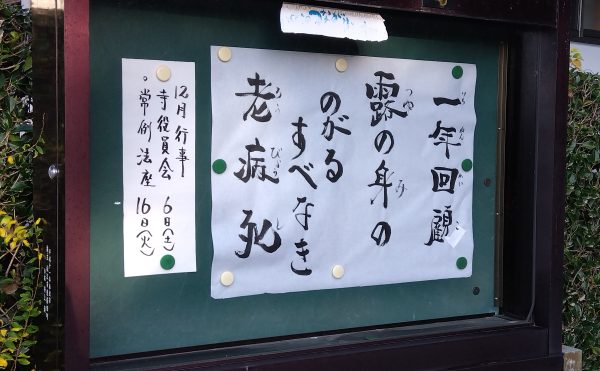 一年回顧
露の身の
のがる
すべなき
老病死
12月行事
寺役員会 6日(土)
。常例法座 16日(火)